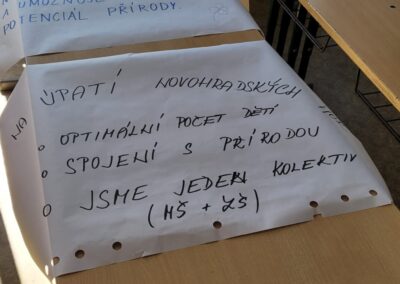 A UMOŽŇUJE
POTENCIÁL PŘÍRODY.
NA ÚPATÍ NOVOHRADSKÝCH
○ OPTIMÁLNÍ POČET DĚTÍ
○ SPOJENÍ S PŘÍRODOU
○ JSME JEDEN KOLEKTIV
(MŠ + ZŠ)